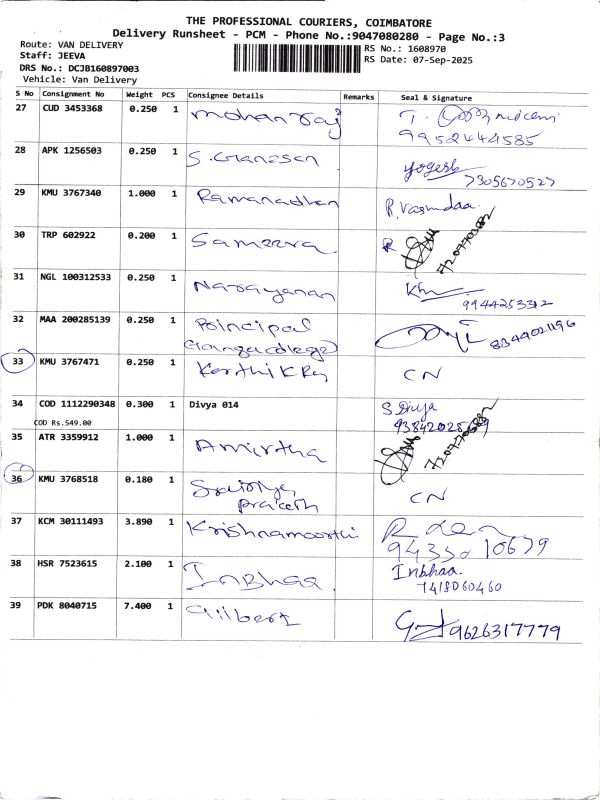 THE PROFESSIONAL COURIERS, COIMBATORE
Delivery Runsheet - PCM - Phone No.:9047080280 - Page No.:3
Route: VAN DELIVERY
RS No.: 1608970
Staff: JEEVA
RS Date: 07-Sep-2025
DRS No.: DCJB160897003
Vehicle: Van Delivery
S No Consignment No Weight PCS Consignee Details Remarks Seal & Signature
27 CUD 3453368 0.250 1 Mohan raj
9952444585
28 APK 1256503 0.250 1 S. Ganesan Yogesh
7305670527
29 KMU 3767340 1.000 1 Ramanadhan
30 TRP 602922 0.200 1 Sameera
31 NGL 100312533 0.250 1 Narayanan
9944253312
32 MAA 200285139 0.250 1 Principal 8344021196
33 KMU 3767471 0.250 1 CN
34 COD 1112290348 0.300 1 Divya 014 S Divya
COD Rs.549.00
35 ATR 3359912 1.000 1 Amirtha
36 KMU 3768518 0.180 1 CN
37 KCM 30111493 3.890 1 Krishnamoorthi
10679
38 HSR 7523615 2.100 1 Inbhaa. Inbhaa.
7418060460
39 PDK 8040715 7.400 1 Gilbert
9626317779